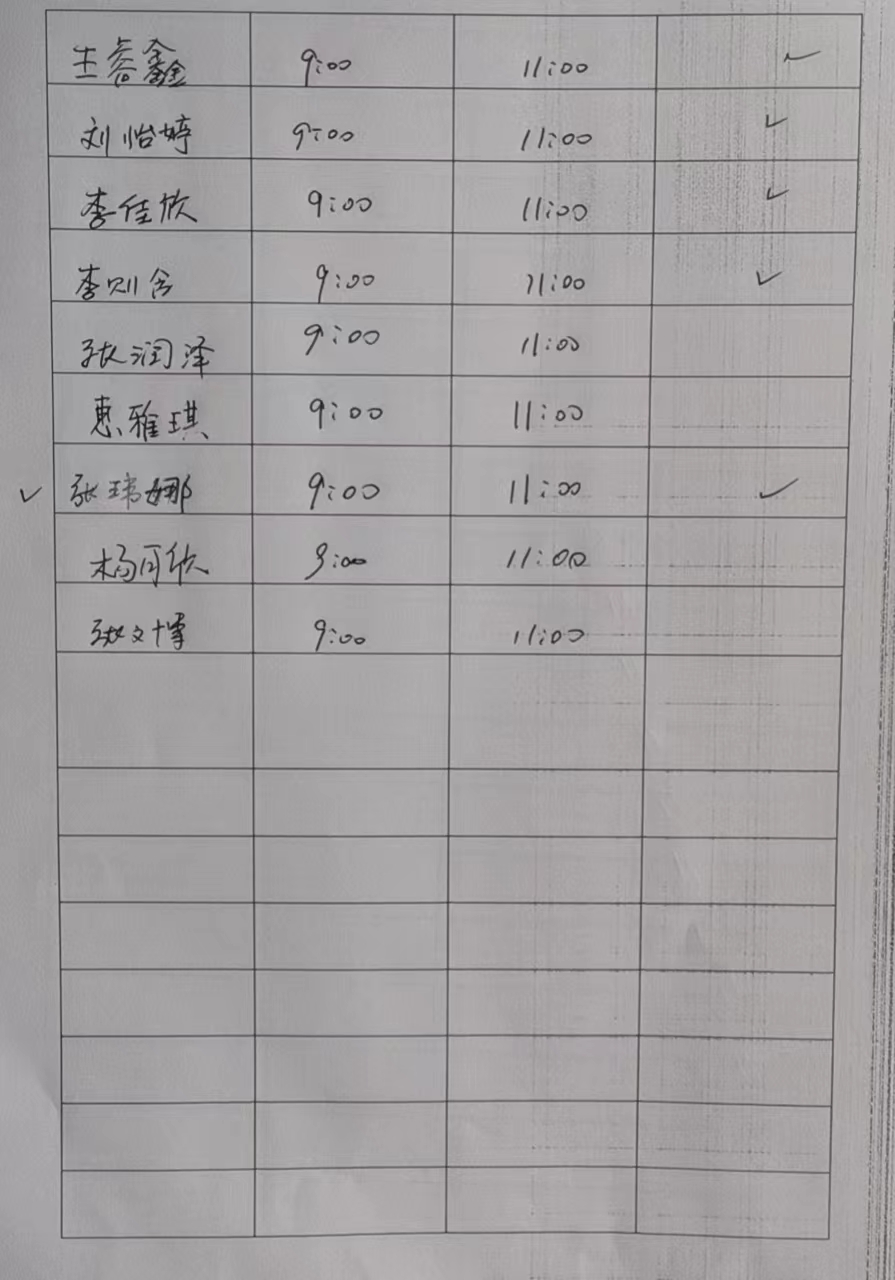 王睿鑫 9:00 11:00 ✓
刘怡婷 9:00 11:00 ✓
李佳欣 9:00 11:00 ✓
李则 9:00 11:00 ✓
张润泽 9:00 11:00
惠雅琪 9:00 11:00
✓ 张玮娜 9:00 11:00 ✓
杨可欣 9:00 11:00
张文博 9:00 11:00